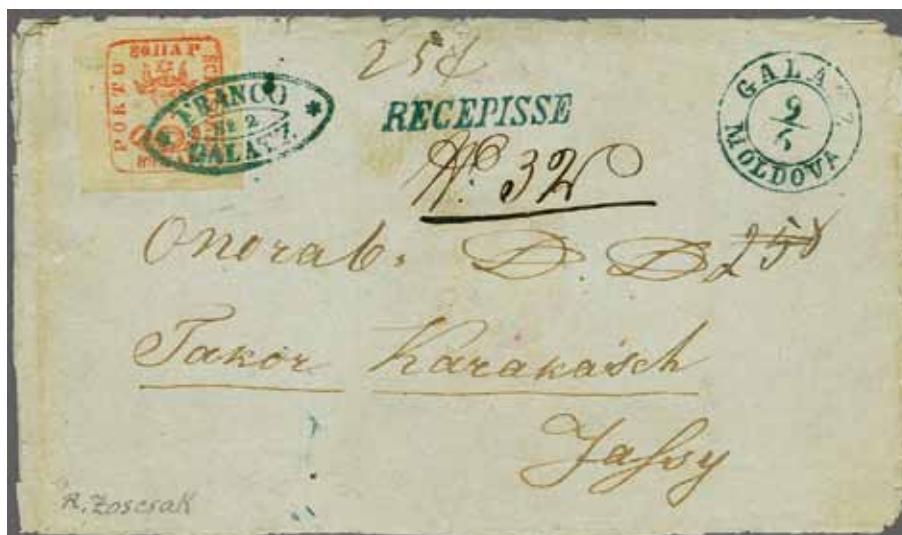 80 ПАР
PORTO
FRANCO
No 2
GALATZ
25d
RECEPISSE
No. 32
GALATZ
9/5
MOLDOVA
Onorab. D. D
Takor Karakasch
Jassy
R. Zoscsak